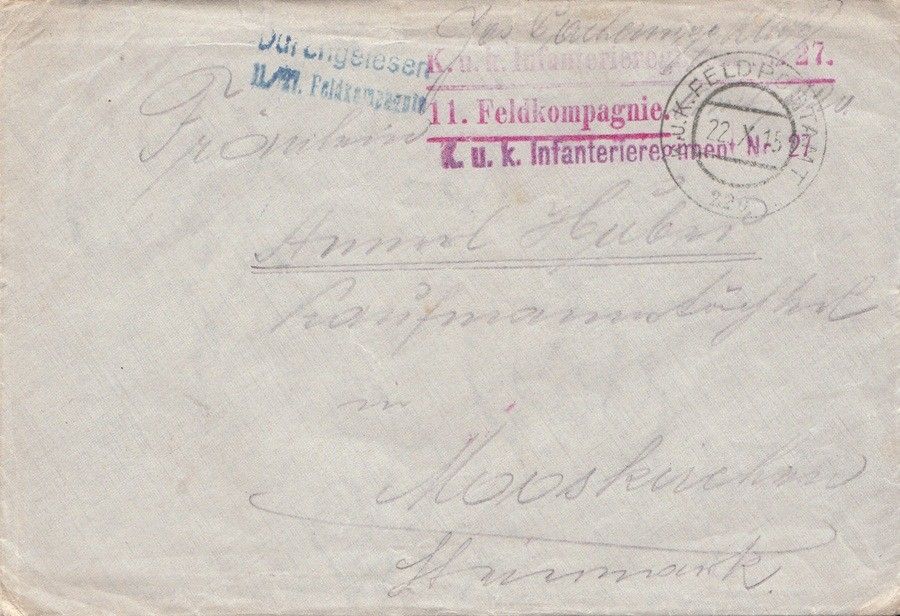 Durchgelesen
11./27. Feldkompagnie
K. u. k. Infanterieregiment Nr. 27.
11. Feldkompagnie.
K. u. k. Infanterieregiment Nr. 27
K.U.K. FELDPOSTAMT
22. X. 15
Fräulein
Huber
Kaufmannstochter
in
Mooskirchen
Steiermark.